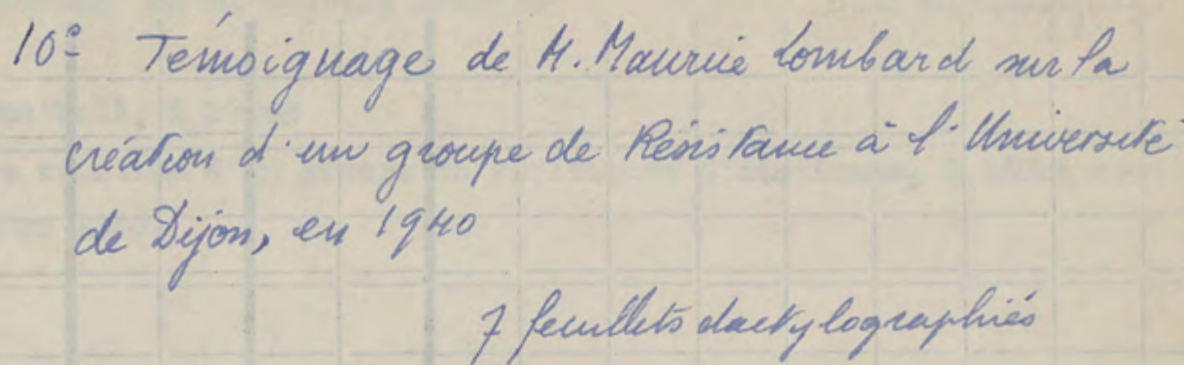 10° Témoignage de M. Maurice Lombard sur la
création d'un groupe de Résistance à l'Université
de Dijon, en 1940
7 feuillets dactylographiés